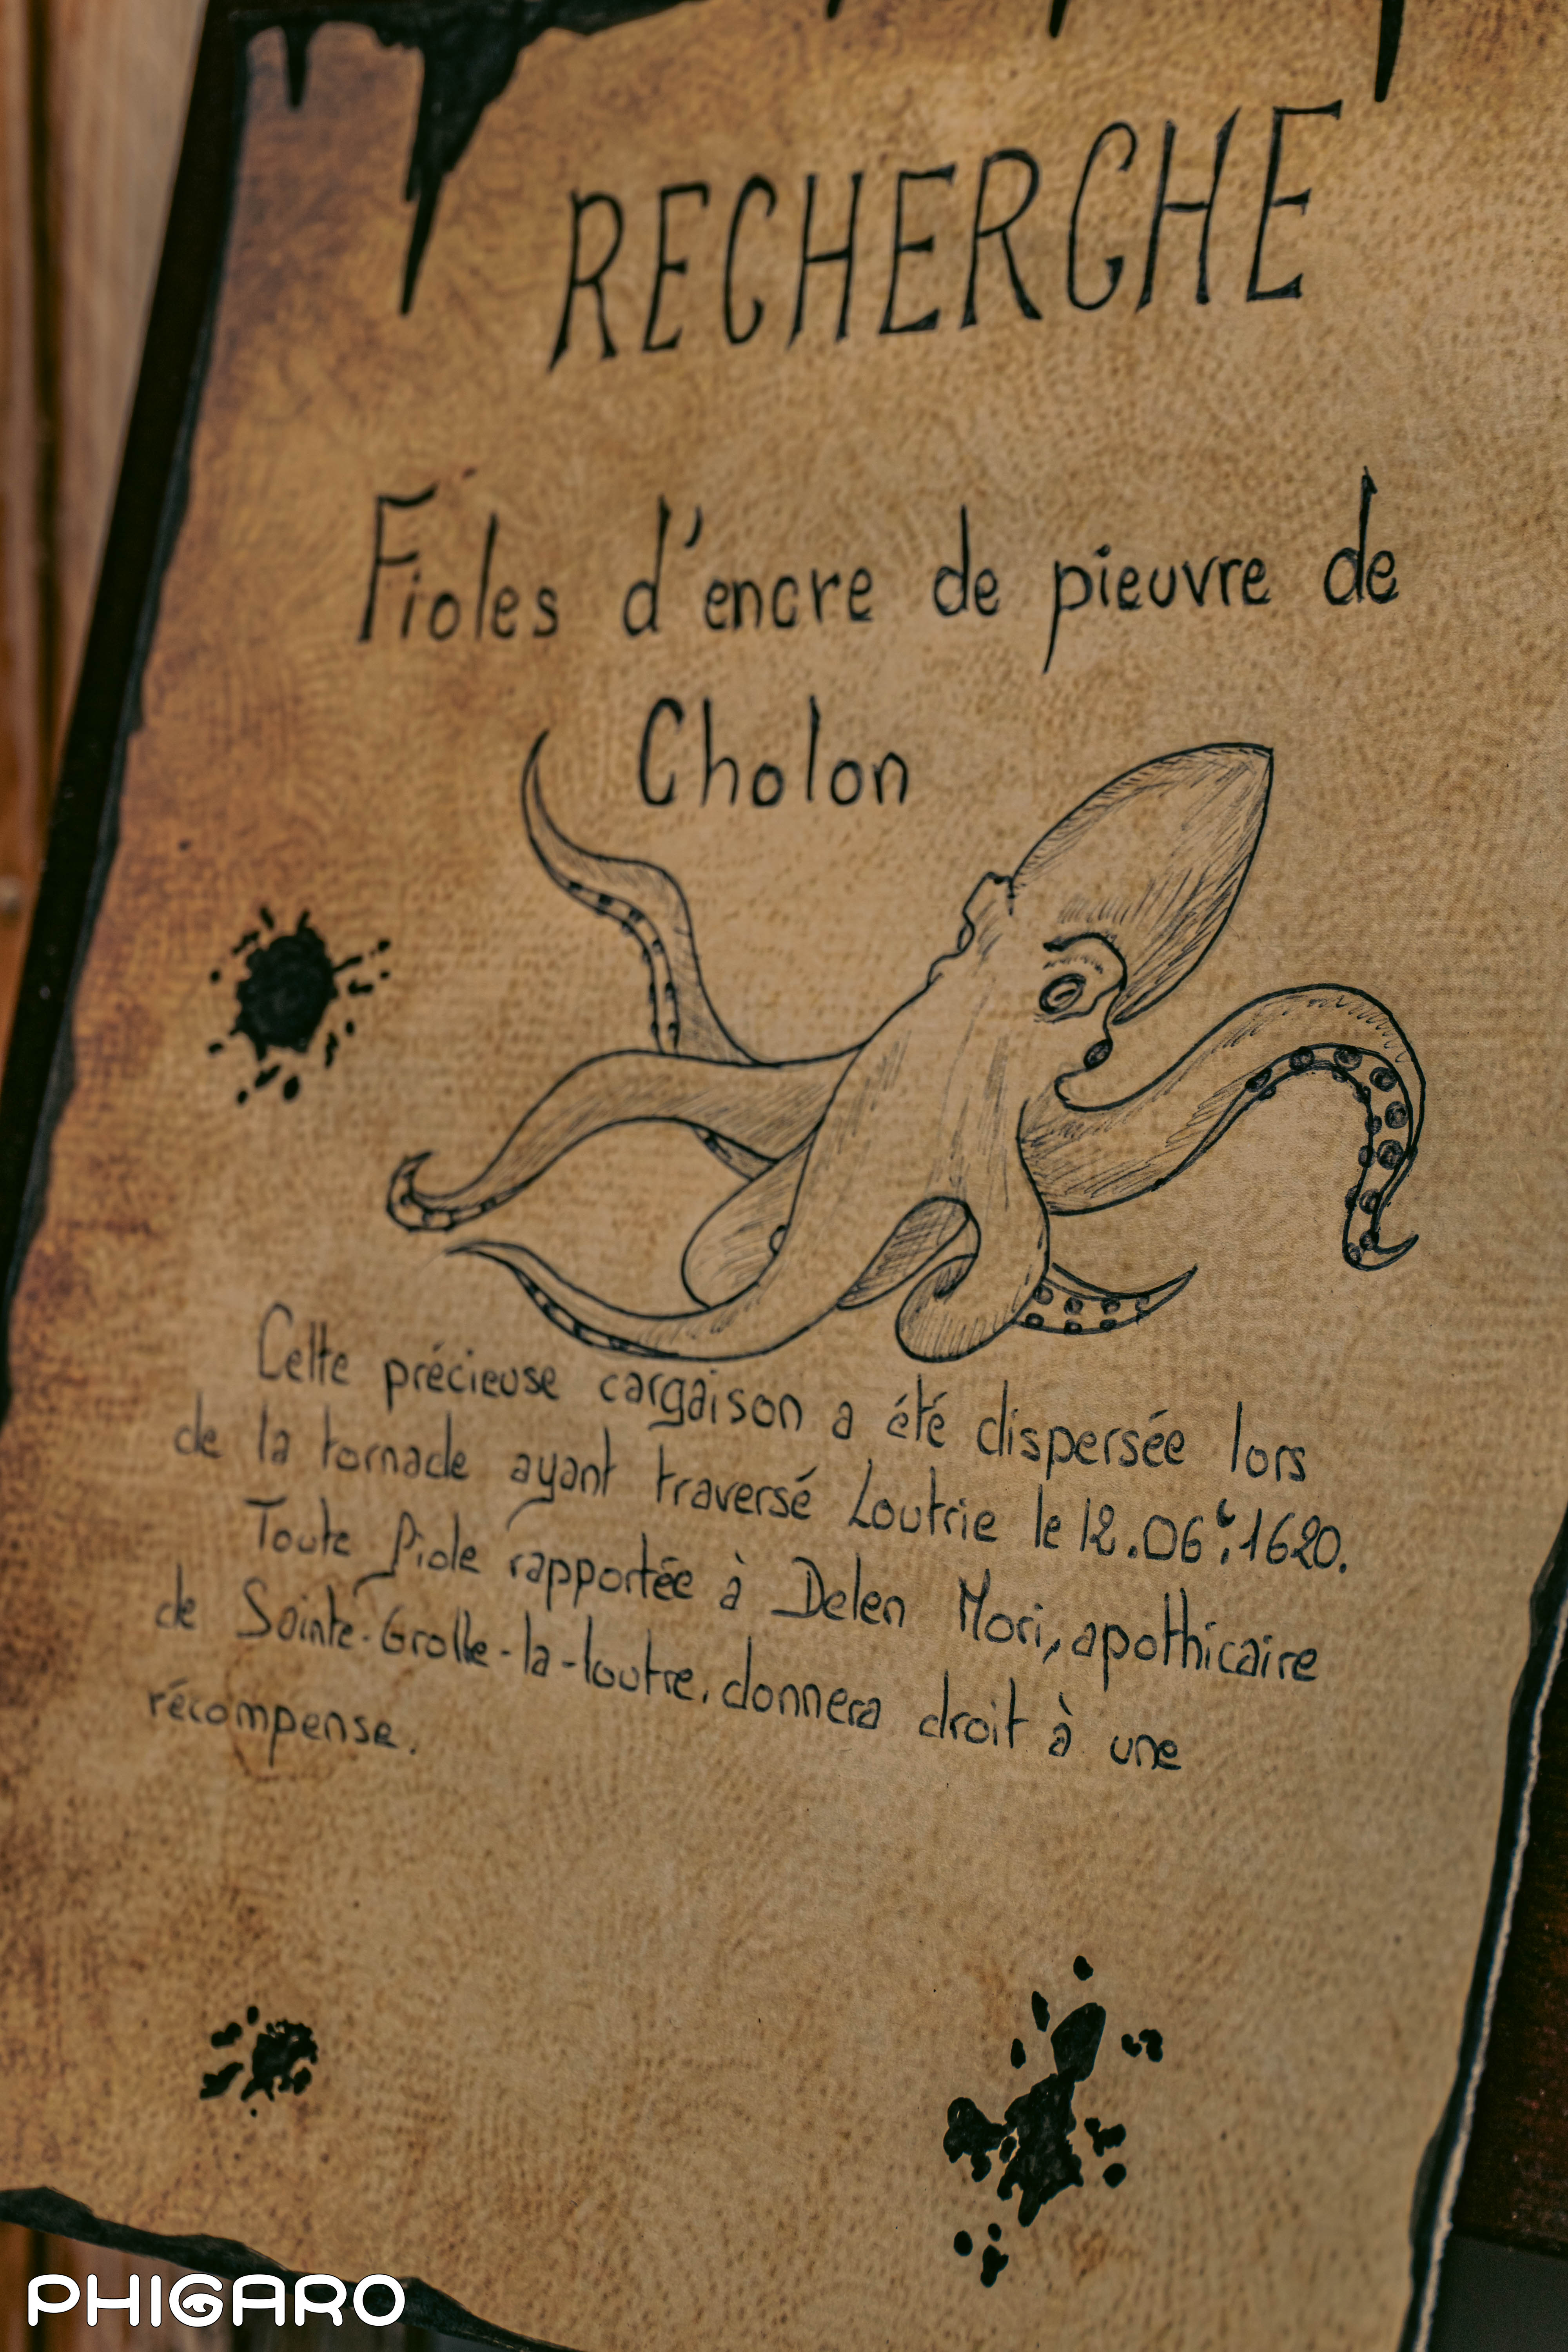 RECHERCHE
Fioles d'encre de pieuvre de
Cholon
Cette précieuse cargaison a été dispersée lors
de la tornade ayant traversé Loutrie le 12.06.1620.
Toute fiole rapportée à Delen Mori, apothicaire
de Sainte-Grolle-la-loutre, donnera droit à une
récompense.
PHIGARO